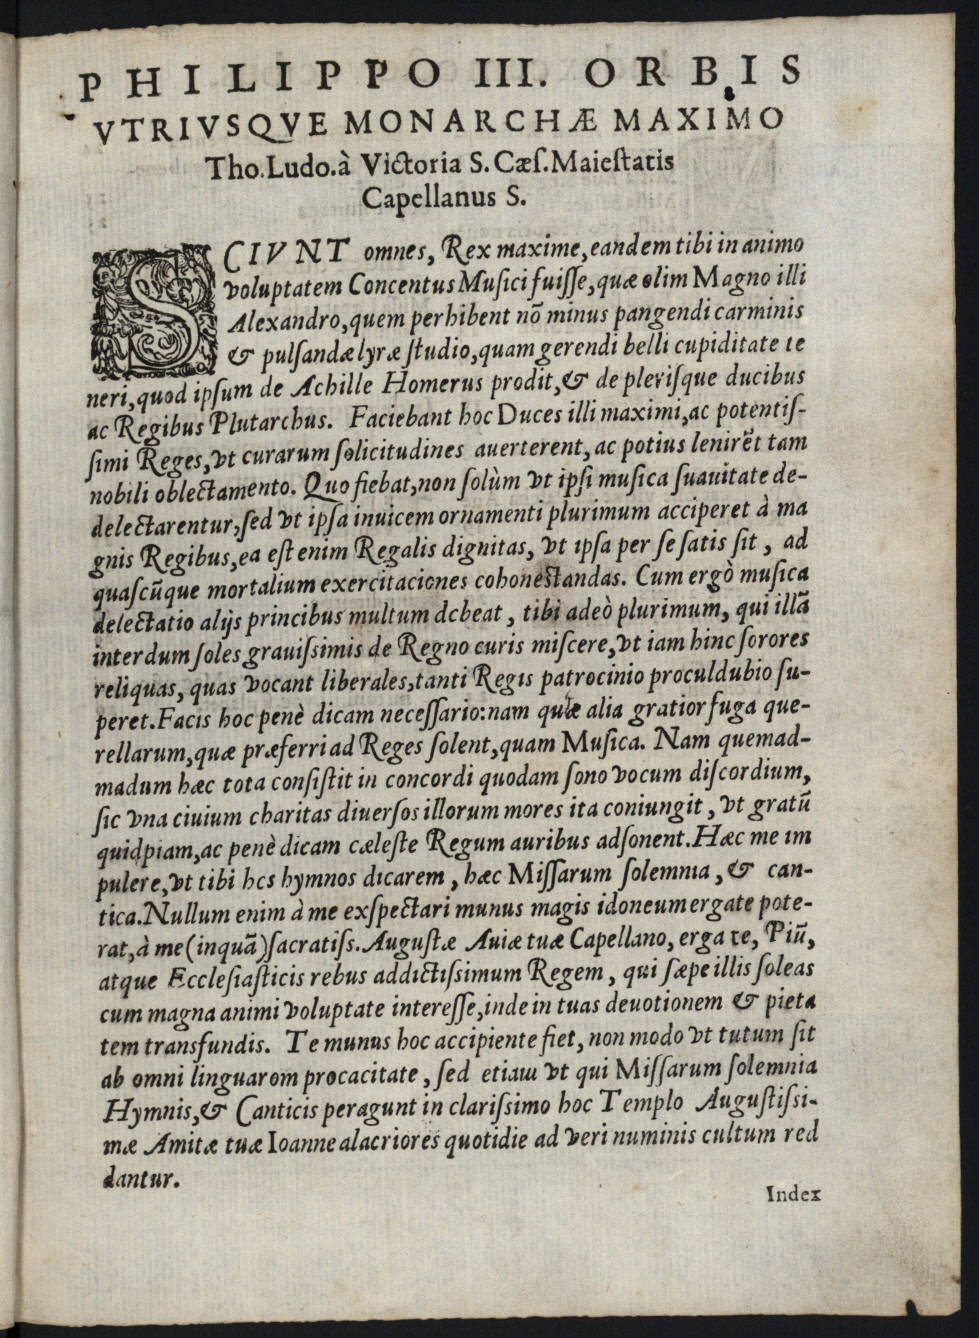 PHILIPPO III. ORBIS
VTRIVSQVE MONARCHÆ MAXIMO
Tho.Ludo.à Victoria S.Cæſ.Maieſtatis
Capellanus S.
SCIVNT omnes, Rex maxime,eandem tibi in animo
voluptatem Concentus Muſici fuiſſe,quæ olim Magno illi
Alexandro,quem perhibent nõ minus pangendi carminis
& pulſandæ lyræ ſtudio,quam gerendi belli cupiditate te
neri,quod ipſum de Achille Homerus prodit,& de pleriſque ducibus
ac Regibus Plutarchus. Faciebant hoc Duces illi maximi,ac potentiſ-
ſimi Reges,vt curarum ſolicitudines auerterent,ac potius lenirẽt tam
nobili oblectamento. Quo fiebat,non ſolùm vt ipſi muſica ſuauitate de-
delectarentur,ſed vt ipſa inuicem ornamenti plurimum acciperet à ma
gnis Regibus,ea eſt enim Regalis dignitas, vt ipſa per ſe ſatis ſit, ad
quaſcũque mortalium exercitaciones cohoneſtandas. Cum ergò muſica
delectatio alijs princibus multum dcbeat, tibi adeò plurimum, qui illã
interdum ſoles grauiſsimis de Regno curis miſcere,vt iam hinc ſorores
reliquas, quas vocant liberales,tanti Regis patrocinio proculdubio ſu-
peret.Facis hoc penè dicam neceſſario:nam quæ alia gratior fuga que-
rellarum,quæ præferri ad Reges ſolent,quam Muſica. Nam quemad-
madum hæc tota conſiſtit in concordi quodam ſono vocum diſcordium,
ſic vna ciuium charitas diuerſos illorum mores ita coniungit, vt gratũ
quidpiam,ac penè dicam cæleſte Regum auribus adſonent.Hæc me im
pulere,vt tibi hcs hymnos dicarem, hæc Miſſarum ſolemnia, & can-
tica.Nullum enim à me exſpectari munus magis idoneum ergate pote-
rat,à me(inquã)ſacratiſs.Auguſtæ Auiæ tuæ Capellano, erga te, Piũ,
atque Eccleſiaſticis rebus addictiſsimum Regem, qui ſæpe illis ſoleas
cum magna animi voluptate intereſſe,inde in tuas deuotionem & pieta
tem transfundis. Te munus hoc accipiente fiet, non modo vt tutum ſit
ab omni linguarom procacitate, ſed etiam vt qui Miſſarum ſolemnia
Hymnis,& Canticis peragunt in clariſsimo hoc Templo Auguſtiſsi-
mæ Amitæ tuæ Ioanne alacriores quotidie ad veri numinis cultum red
dantur.
Index